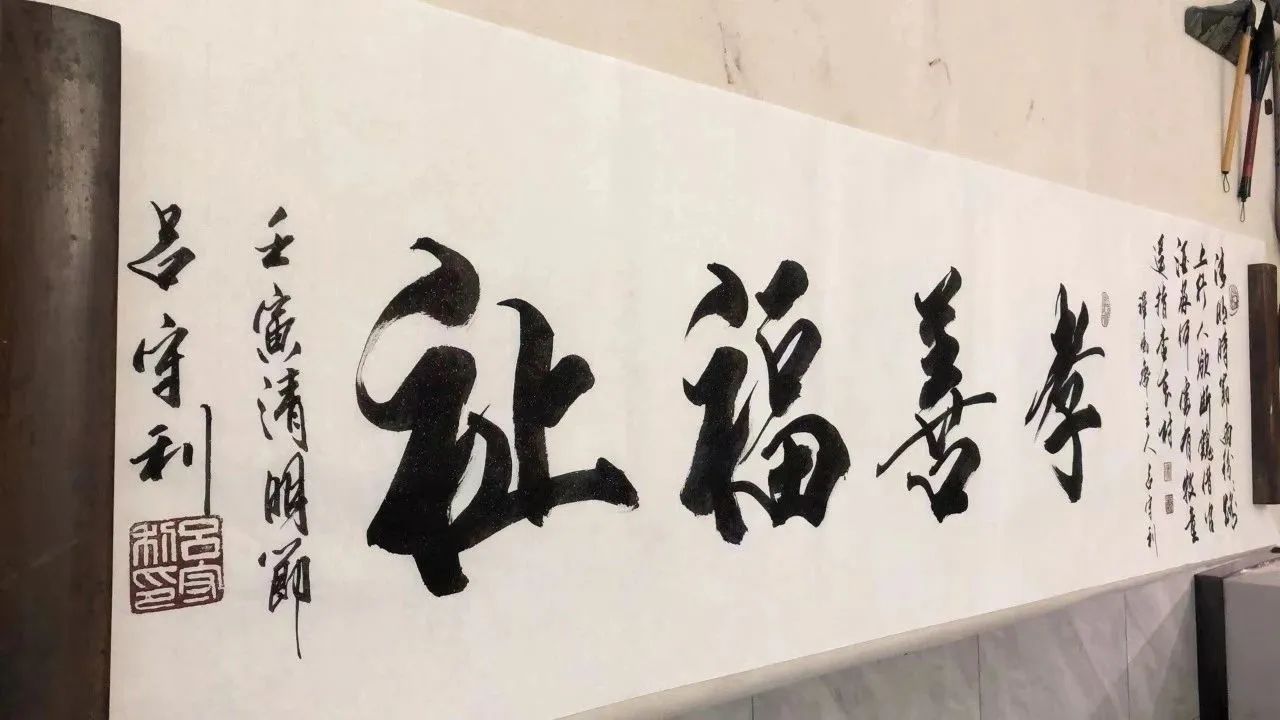 清明時節雨紛紛路
上行人欲断魂借问
酒家何處有牧童
遥指杏花村
主人吕守利
孝善福祉
壬寅清明節
吕守利
吕守利印